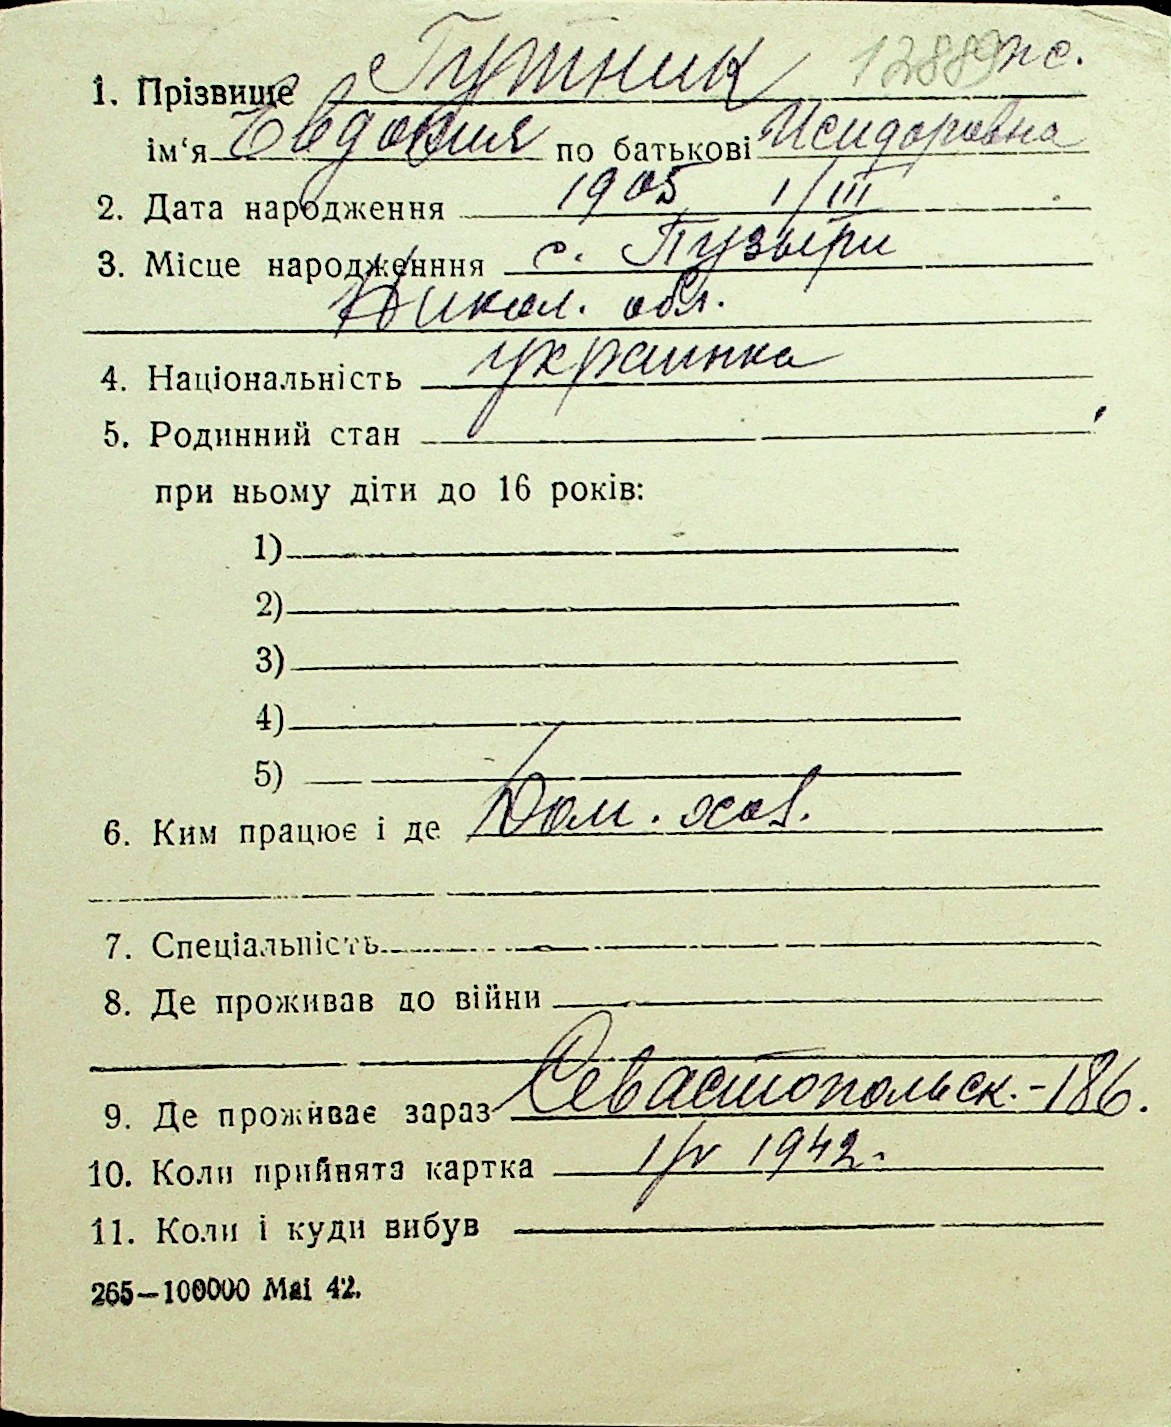 12889 пс.
1. Прізвище Гутник
ім‘я Евдокия по батькові Исидоровна
2. Дата народження 1905 1/III
3. Місце народженння с. Пузыри
Никол. обл.
4. Національність украинка
5. Родинний стан
при ньому діти до 16 років:
1)
2)
3)
4)
5)
6. Ким працює і де Дом. хоз.
7. Спеціальність
8. Де проживав до війни
9. Де проживає зараз Севастопольск.-186.
10. Коли прийнята картка 1/V 1942.
11. Коли і куди вибув
265—100000 Маі 42.